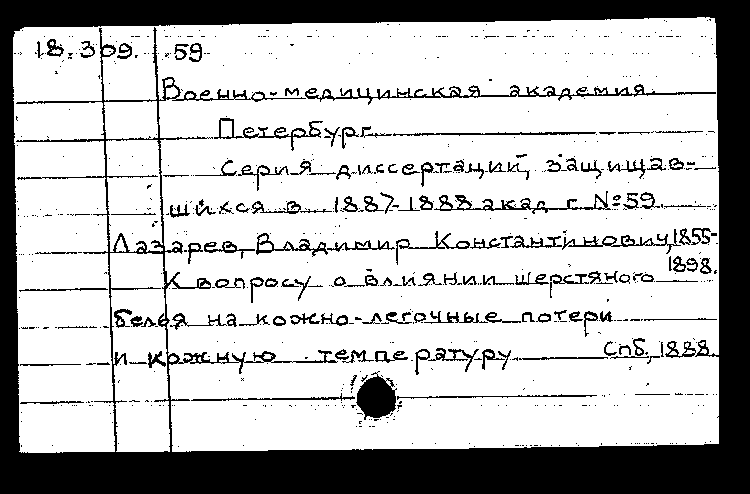 18.309. 59
Военно-медицинская академия.
Петербург.
Серия диссертаций, защищав-
шихся в 1887-1888 акад г. №59.
Лазарев, Владимир Константинович, 1855-
1898.
К вопросу о влиянии шерстяного
белья на кожно-легочные потери
и кожную температуру Спб., 1888.